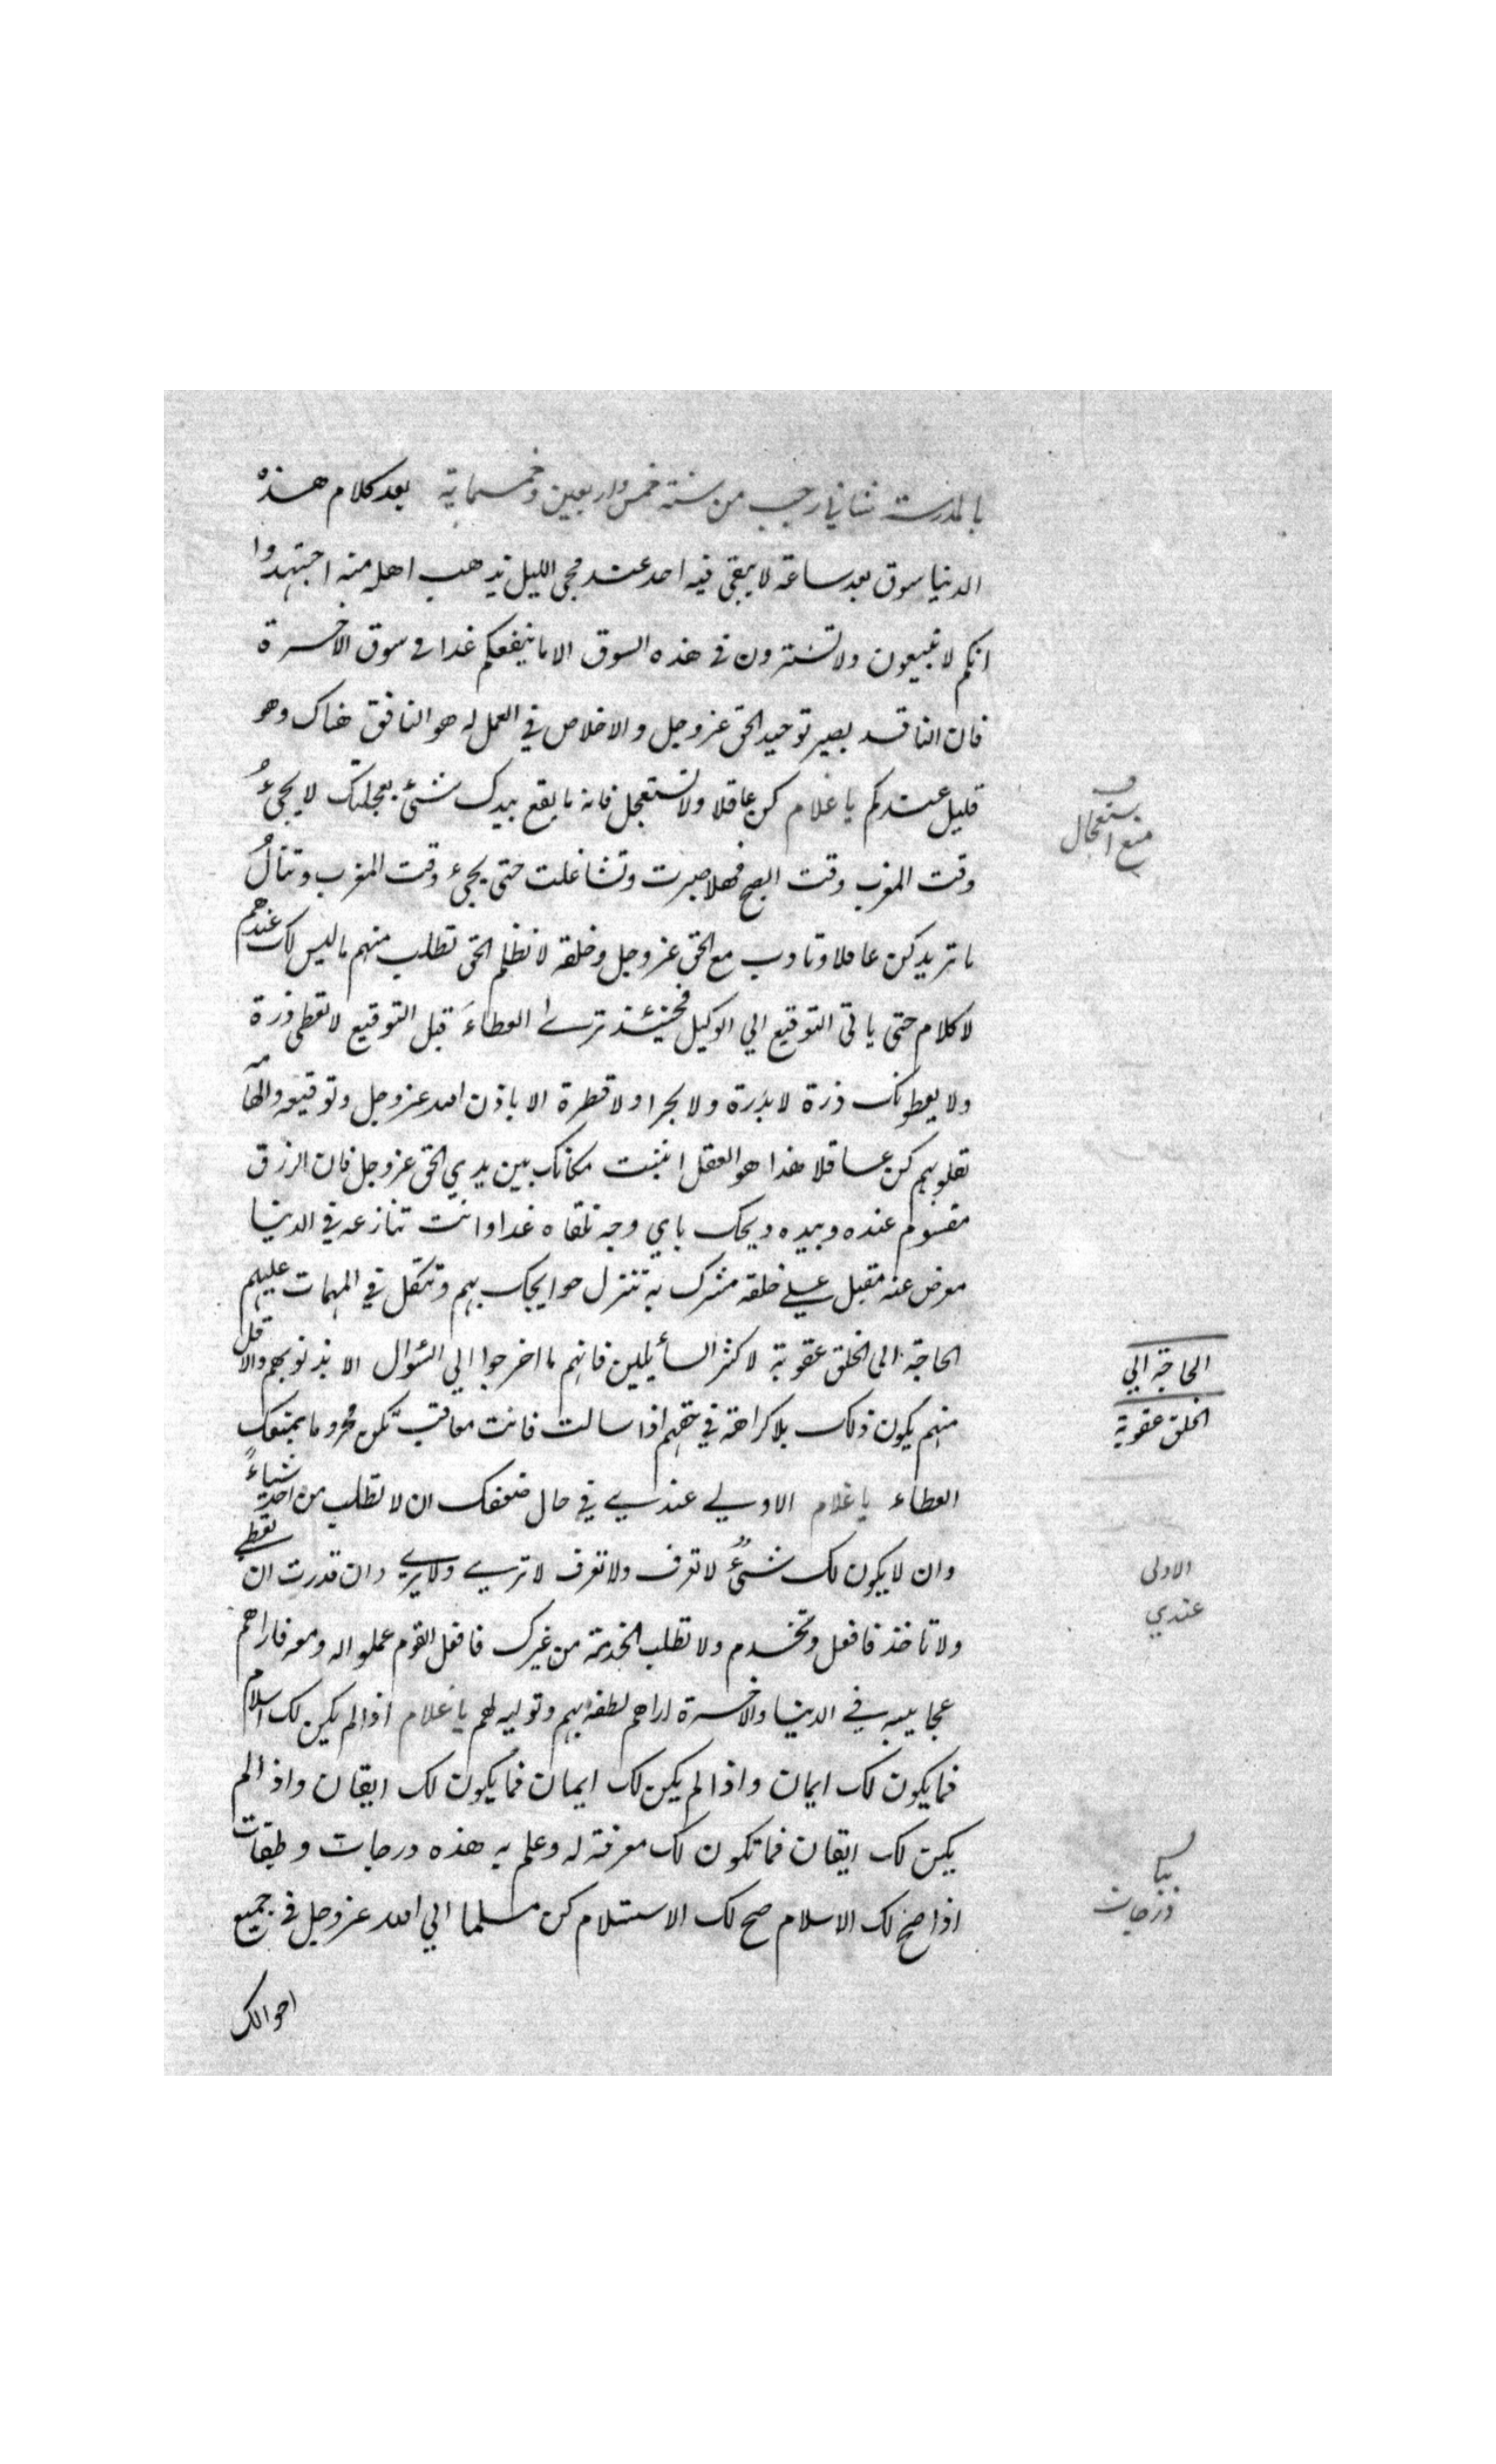 بالمدرسة ثاني رجب من سنة خمس واربعين وخمسماية بعد كلام هذه
الدنيا سوق بعد ساعة لا يبقى فيه احد عند مجى الليل يذهب اهله منه اجتهدوا
انكم لا تبيعون ولا تشترون في هذه السوق الا ما ينفعكم غدا في سوق الاخرة
فان الناقد بصير توحيد الحق عز وجل والاخلاص في العمل له هو النافق هناك وهو
قليل عندكم يا غلام كن عاقلا ولا تستعجل فانه ما يقع بيدك شئ بعجلتك لا يجئ
وقت المغرب وقت الصبح فهلا صبرت وتشاغلت حتى يجئ وقت المغرب وتنال
ما تريد كن عاقلا وتادب مع الحق عز وجل وخلقه لا تظلم الخق تطلب منهم ما ليس لك عندهم
لا كلام حتى ياتى التوقيع الي الوكيل فحينئذ ترى العطاء قبل التوقيع لا تعطى ذرة
ولا يعطونك ذرة لا بذرة ولا بحرا ولا قطرة الا باذن الله عز وجل وتوقيعه والهامه
بقلوبهم كن عاقلا هذا هو العقل اثبت مكانك بين يدي الحق عز وجل فان الرزق
مقسوم عنده وبيده ويحك باي وجه تلقاه غدا وانت تنازعه في الدنيا
معرض عنه مقبل علي خلقه مشرك به تنزل حوايجك بهم وتتكل في المهمات عليهم
الحاجة الى الخلق عقوبة لاكثر السائلين فانهم ما اخرجوا الي السئوال الا بذنوبهم والاقل
منهم يكون ذلك بلا كراهة في حقهم اذا سالت فانت معاقب تكن محروما يمنعك
العطاء يا غلام الاولي عندي في حال ضعفك ان لا تطلب من احد شياء
وان لا يكون لك شئ لا تعرف ولا تعرف لا تري ولا يري وان قدرت ان تعطي
ولا تاخذ فافعل وتخدم ولا تطلب الخدمة من غيرك فافعل القوم عملوا له ومعه فاراهم
عجايبه في الدنيا والاخرة اراهم لطفه بهم وتوليه لهم يا غلام اذا لم يكن لك اسلام
فما يكون لك ايمان واذا لم يكن لك ايمان فما يكون لك ايقان واذا لم
يكن لك ايقان فما تكون لك معرفة له وعلم به هذه درجات وطبقات
اذا صح لك الاسلام صح لك الاستسلام كن مسلما الي الله عز وجل في جميع
احوالك
منع استعجال
الحاجة الي
الخلق عقوبة
الاولى
عندي
درجات